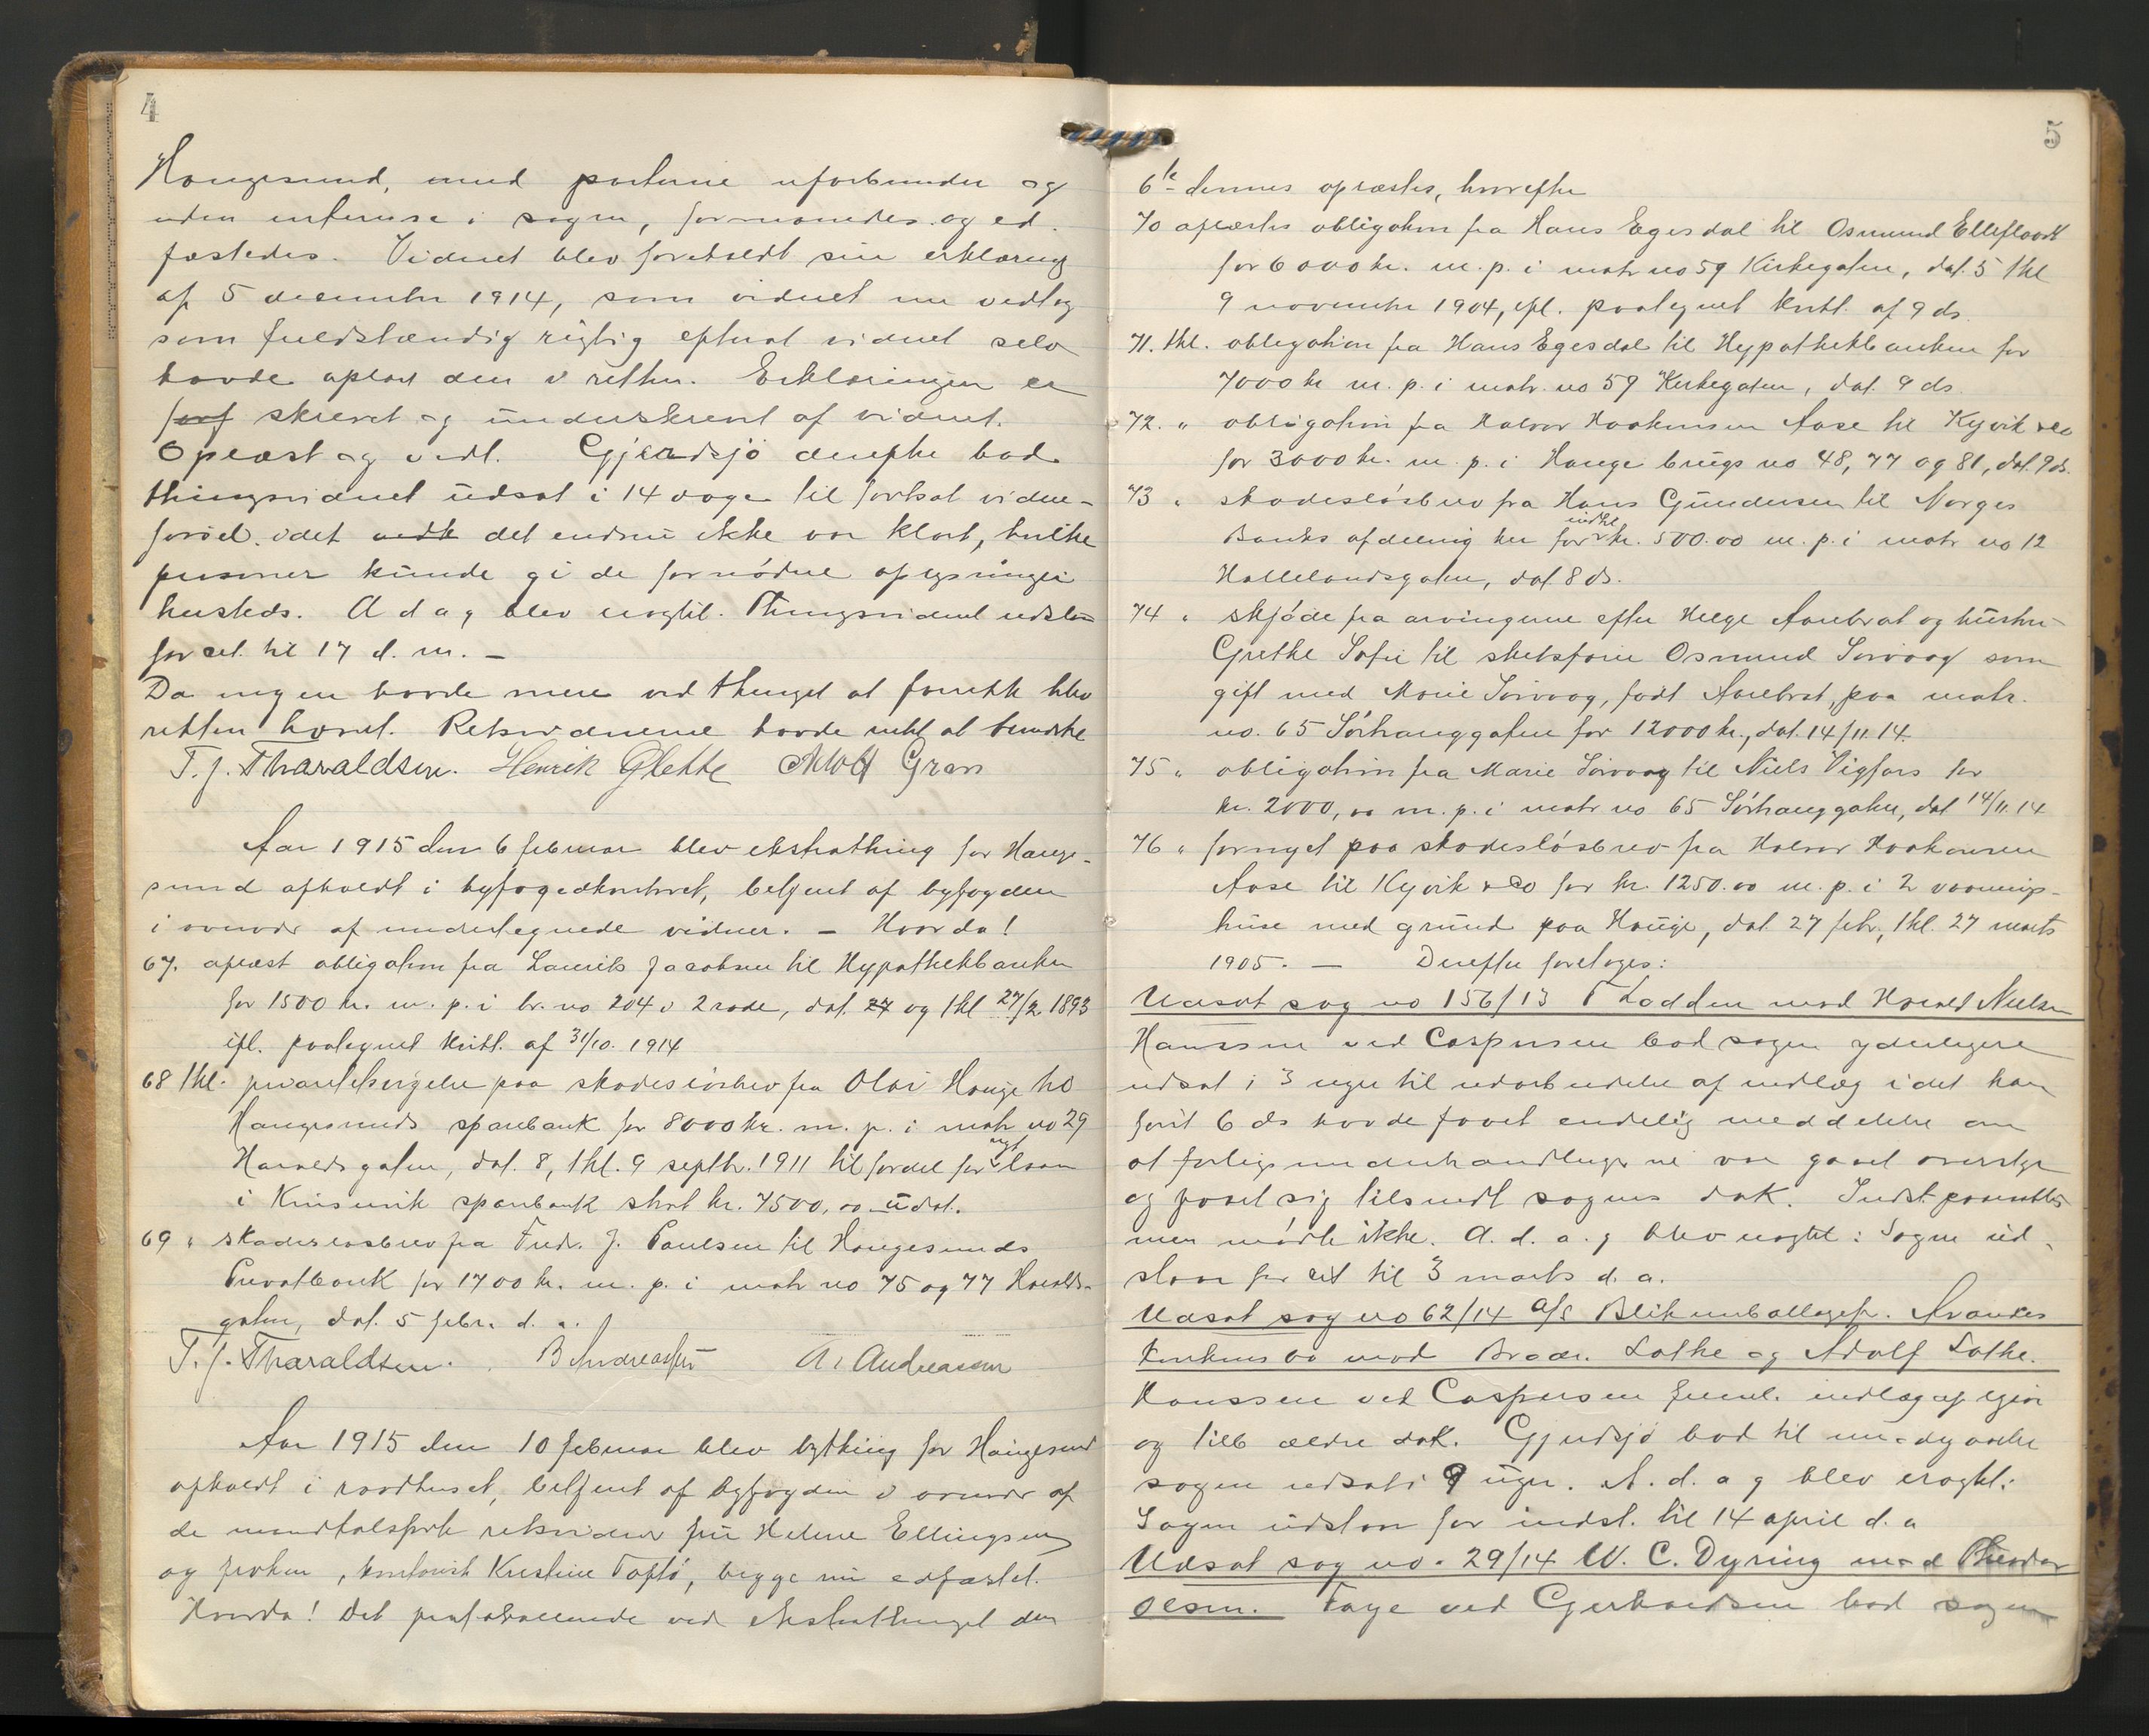 4
Haugesund, med parterne uforbunden og
uden interesse i sagen, formanedes og ed.
fæstedes. Vidnet blev foreholdt sin erklæring
af 5 december 1914, som vidnet nu vedtog
som fuldstændig rigtig efterat vidnet selv
havde oplæst den i retten. Erklæringen er
skrevet og underskrevet af vidnet.
Oplæst og vedt. Gjerdsjø derefter bad
thingsvidnet udsat i 14 dage til fortsat vidne-
førsel, idet det endnu ikke var klart, hvilke
personer kunde gi de fornødne oplysninger
hersteds. A d a g blev eragtet. Thingsvidnet udstaar
for ret til 17 d. m. —
Da ingen havde mere ved thinget at forrette blev
retten hævet. Retsvidnerne havde intet at bemerke
T. J. Tharaldsen. Henrik Glette Adolf Gran
Aar 1915 den 6 februar blev ekstrathing for Hauge-
sund afholdt i byfogedkontoret, betjent af byfogden
i overvær af undertegnede vidner. – Hvorda!
67. aflæst obligation fra Laurits Jacobsen til Hypothekbanken
for 1500 kr. m. p. i br. no 204 i 2 rode, dat. 27 og thl 27/2 1893
ifl. paategnet kvitt. af 31/10. 1914
68 thl. prioritetsvigelse paa skadesløsbrev fra Olai Hauge til
Haugesunds sparebank for 8000 kr. m. p. i matr no 29
Haraldsgaten, dat. 8, thl. 9 septbr. 1911 til fordel for nyt laan
i Kinservik sparebank stort kr. 7500,00 udat.
69 " skadesløsbrev fra Fredr. J. Paulsen til Haugesunds
Privatbank for 1700 kr. m. p. i matr no 75 og 77 Haralds-
gaten, dat. 5 febr. d. a.
T. J. Tharaldsen. B Andreassen A. Andreassen
Aar 1915 den 10 februar blev bything for Haugesund
afholdt i raadhuset, betjent af byfogden i overvær af
de mandtalsførte retsvidner fru Helene Ellingsen
og frøken, kontorist Kristine Toftø, begge nu edfæstet.
Hvorda! Det protokollerede ved ekstrathinget den
5
6te dennes oplæstes, hvorefter
70 aflæstes obligation fra Hans Egesdal til Osmund
for 6000 kr. m. p. i matr no 59 Kirkegaten, dat. 5 thl
9 november 1904, ifl. paategnet kvitt. af 9 ds.
71. thl. obligation fra Hans Egesdal til Hypothekbanken for
7000 kr m. p. i matr. no 59 Kirkegaten, dat. 9 ds.
72. " obligation fra Halvor Haakonsen Aase til Kyvik & co
for 3000 kr. m. p. i Hauge brugs no 48, 77 og 81, dat. 9 ds.
73 " skadesløsbrev fra Hans Gundersen til Norges
Banks afdeling her for indtil kr. 500.00 m. p. i matr no 12
Halleland­sgaten, dat. 8 ds.
74 " skjøde fra arvingerne efter Helge Aarebrot og hustru
Grethe Sofie til skibsfører Osmund Sørvaag som
gift med Marie Sørvaag, født Aarebrot, paa matr.
no. 65 Sørhauggaten for 12000 kr., dat. 14/11. 14.
75 " obligation fra Marie Sørvaag til Niels Vigfors for
kr. 2000,00 m. p. i matr no 65 Sørhauggaten, dat 14/11. 14
76 " fornyet paa skadesløsbrev fra Halvor Haakonsen
Aase til Kyvik & Co for kr. 1250.00 m. p. i 2 vaanings-
huse med grund paa Hauge, dat. 27 febr., thl. 27 marts
1905. — Derefter foretoges:
Udsat sag no 156/13 T Lodden mod Harald Nielsen
Hanssen ved Caspersen bad sagen yderligere
udsat i 3 uger til udarbeidelse af indlæg idet han
først 6 ds havde faaet endelig meddelelse om
at forligsunderhandlingerne var gaaet overstyr
og faaet sig tilsendt sagens dok. Indst.
men mødte ikke. A. d. a. g blev eragtet: Sagen ud-
staar for ret til 3 marts d. a.
Udsat sag no 62/14 A/S Blikemballagefr. Avances
konkursbo mod Brødr. Lothe og Adolf Lothe.
Hanssen ved Caspersen freml. indlæg af igaar
og tilb ældre dok. Gjerdsjø bad til imødegaaelse
sagen udsat i 9 uger. A. d. a g blev eragtet:
Sagen udstaar for indst. til 14 april d. a
Udsat sag no. 29/14 W. C. Dyring mod Theodor
Olsen. Faye ved Gerhardsen bad sagen